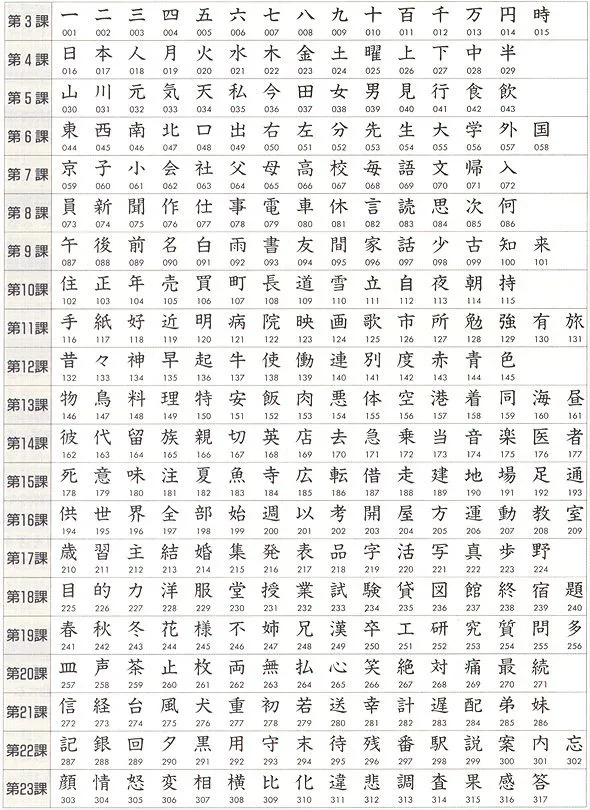 第3課 一 二 三 四 五 六 七 八 九 十 百 千 万 円 時
001 002 003 004 005 006 007 008 009 010 011 012 013 014 015
第4課 日 本 人 月 火 水 木 金 土 曜 上 下 中 半
016 017 018 019 020 021 022 023 024 025 026 027 028 029
第5課 山 川 元 気 天 私 今 田 女 男 見 行 食 飲
030 031 032 033 034 035 036 037 038 039 040 041 042 043
第6課 東 西 南 北 口 出 右 左 分 先 生 大 学 外 国
044 045 046 047 048 049 050 051 052 053 054 055 056 057 058
第7課 京 子 小 会 社 父 母 高 校 毎 語 文 帰 入
059 060 061 062 063 064 065 066 067 068 069 070 071 072
第8課 員 新 聞 作 仕 事 電 車 休 言 読 思 次 何
073 074 075 076 077 078 079 080 081 082 083 084 085 086
第9課 午 後 前 名 白 雨 書 友 間 家 話 少 古 知 来
087 088 089 090 091 092 093 094 095 096 097 098 099 100 101
第10課 住 正 年 売 買 町 長 道 雪 立 自 夜 朝 持
102 103 104 105 106 107 108 109 110 111 112 113 114 115
第11課 手 紙 好 近 明 病 院 映 画 歌 市 所 勉 強 有 旅
116 117 118 119 120 121 122 123 124 125 126 127 128 129 130 131
第12課 昔 々 神 早 起 牛 使 働 連 別 度 赤 青 色
132 133 134 135 136 137 138 139 140 141 142 143 144 145
第13課 物 鳥 料 理 特 安 飯 肉 悪 体 空 港 着 同 海 昼
146 147 148 149 150 151 152 153 154 155 156 157 158 159 160 161
第14課 彼 代 留 族 親 切 英 店 去 急 乗 当 音 楽 医 者
162 163 164 165 166 167 168 169 170 171 172 173 174 175 176 177
第15課 死 意 味 注 夏 魚 寺 広 転 借 走 建 地 場 足 通
178 179 180 181 182 183 184 185 186 187 188 189 190 191 192 193
第16課 供 世 界 全 部 始 週 以 考 開 屋 方 運 動 教 室
194 195 196 197 198 199 200 201 202 203 204 205 206 207 208 209
第17課 歳 習 主 結 婚 集 発 表 品 字 活 写 真 歩 野
210 211 212 213 214 215 216 217 218 219 220 221 222 223 224
第18課 目 的 力 洋 服 堂 授 業 試 験 貸 図 館 終 宿 題
225 226 227 228 229 230 231 232 233 234 235 236 237 238 239 240
第19課 春 秋 冬 花 様 不 姉 兄 漢 卒 工 研 究 質 問 多
241 242 243 244 245 246 247 248 249 250 251 252 253 254 255 256
第20課 皿 声 茶 止 枚 両 無 払 心 笑 絶 対 痛 最 続
257 258 259 260 261 262 263 264 265 266 267 268 269 270 271
第21課 信 経 台 風 犬 重 初 若 送 幸 計 遅 配 弟 妹
272 273 274 275 276 277 278 279 280 281 282 283 284 285 286
第22課 記 銀 回 夕 黒 用 守 末 待 残 番 駅 説 案 内 忘
287 288 289 290 291 292 293 294 295 296 297 298 299 300 301 302
第23課 顔 情 怒 変 相 横 比 化 違 悲 調 査 果 感 答
303 304 305 306 307 308 309 310 311 312 313 314 315 316 317